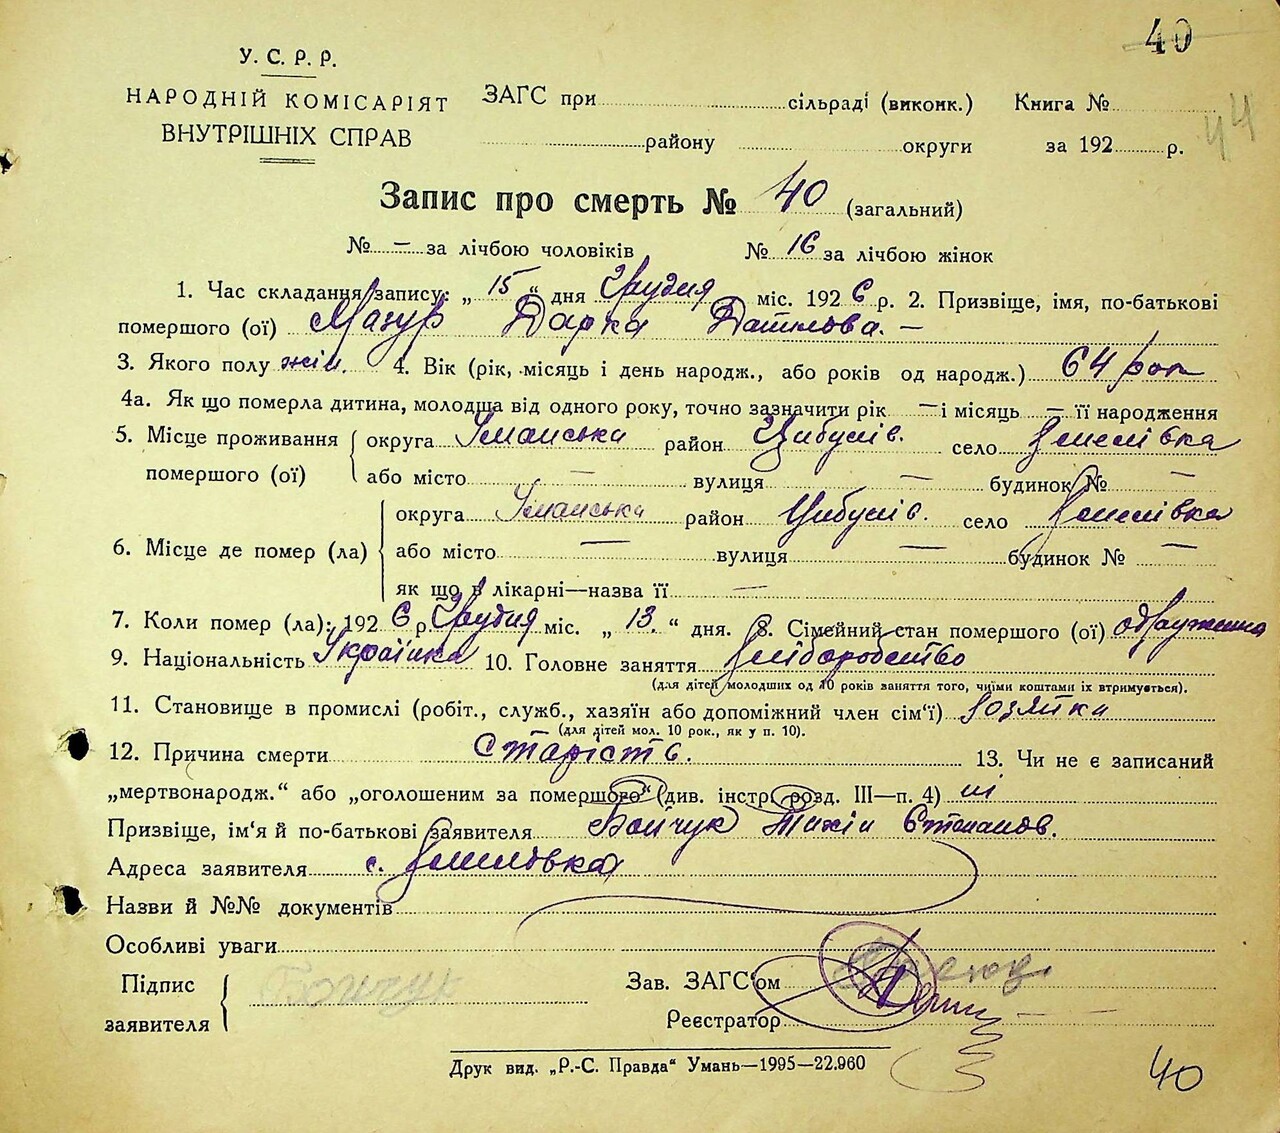 40
У. С. Р. Р.
НАРОДНІЙ КОМІСАРІЯТ
ВНУТРІШНІХ СПРАВ
ЗАГС при сільраді (виконк.) Книга №
району округи за 192 р.
44
Запис про смерть № 40 (загальний)
№ — за лічбою чоловіків № 16 за лічбою жінок
1. Час складання запису: „ 15 “ дня Грудня міс. 1926 р. 2. Призвіще, імя, по-батькові
помершого (ої) Мазур Дарка Данилова. —
3. Якого полу жін. 4. Вік (рік, місяць і день народж., або років од народж.) 64 рок
4а. Як що померла дитина, молодша від одного року, точно зазначити рік — і місяць — її народження
5. Місце проживання помершого (ої) округа Уманська район Цибулів. село
або місто — вулиця — будинок № —
6. Місце де помер (ла) округа Уманська район Цибулів. село
або місто — вулиця — будинок № —
як що в лікарні—назва її —
7. Коли помер (ла): 1926 р. Грудня міс. „ 13. “ дня. 8. Сімейний стан помершого (ої) одружена
9. Національність Українка 10. Головне заняття
(для дітей молодших од 10 років заняття того, чиїми коштами їх втримується).
11. Становище в промислі (робіт., служб., хазяїн або допоміжний член сім‘ї) хозяйка
(для дітей мол. 10 рок., як у п. 10).
12. Причина смерти старість. 13. Чи не є записаний
„мертвонародж.“ або „оголошеним за помершого“ (див. інстр. розд. III—п. 4) ні
Призвіще, ім‘я й по-батькові заявителя Бойчук Тихін Степанов.
Адреса заявителя с.
Назви й №№ документів
Особливі уваги
Підпис заявителя Бойчук
Зав. ЗАГС‘ом
Реєстратор
Друк вид. „Р.-С. Правда“ Умань—1995—22.960
40